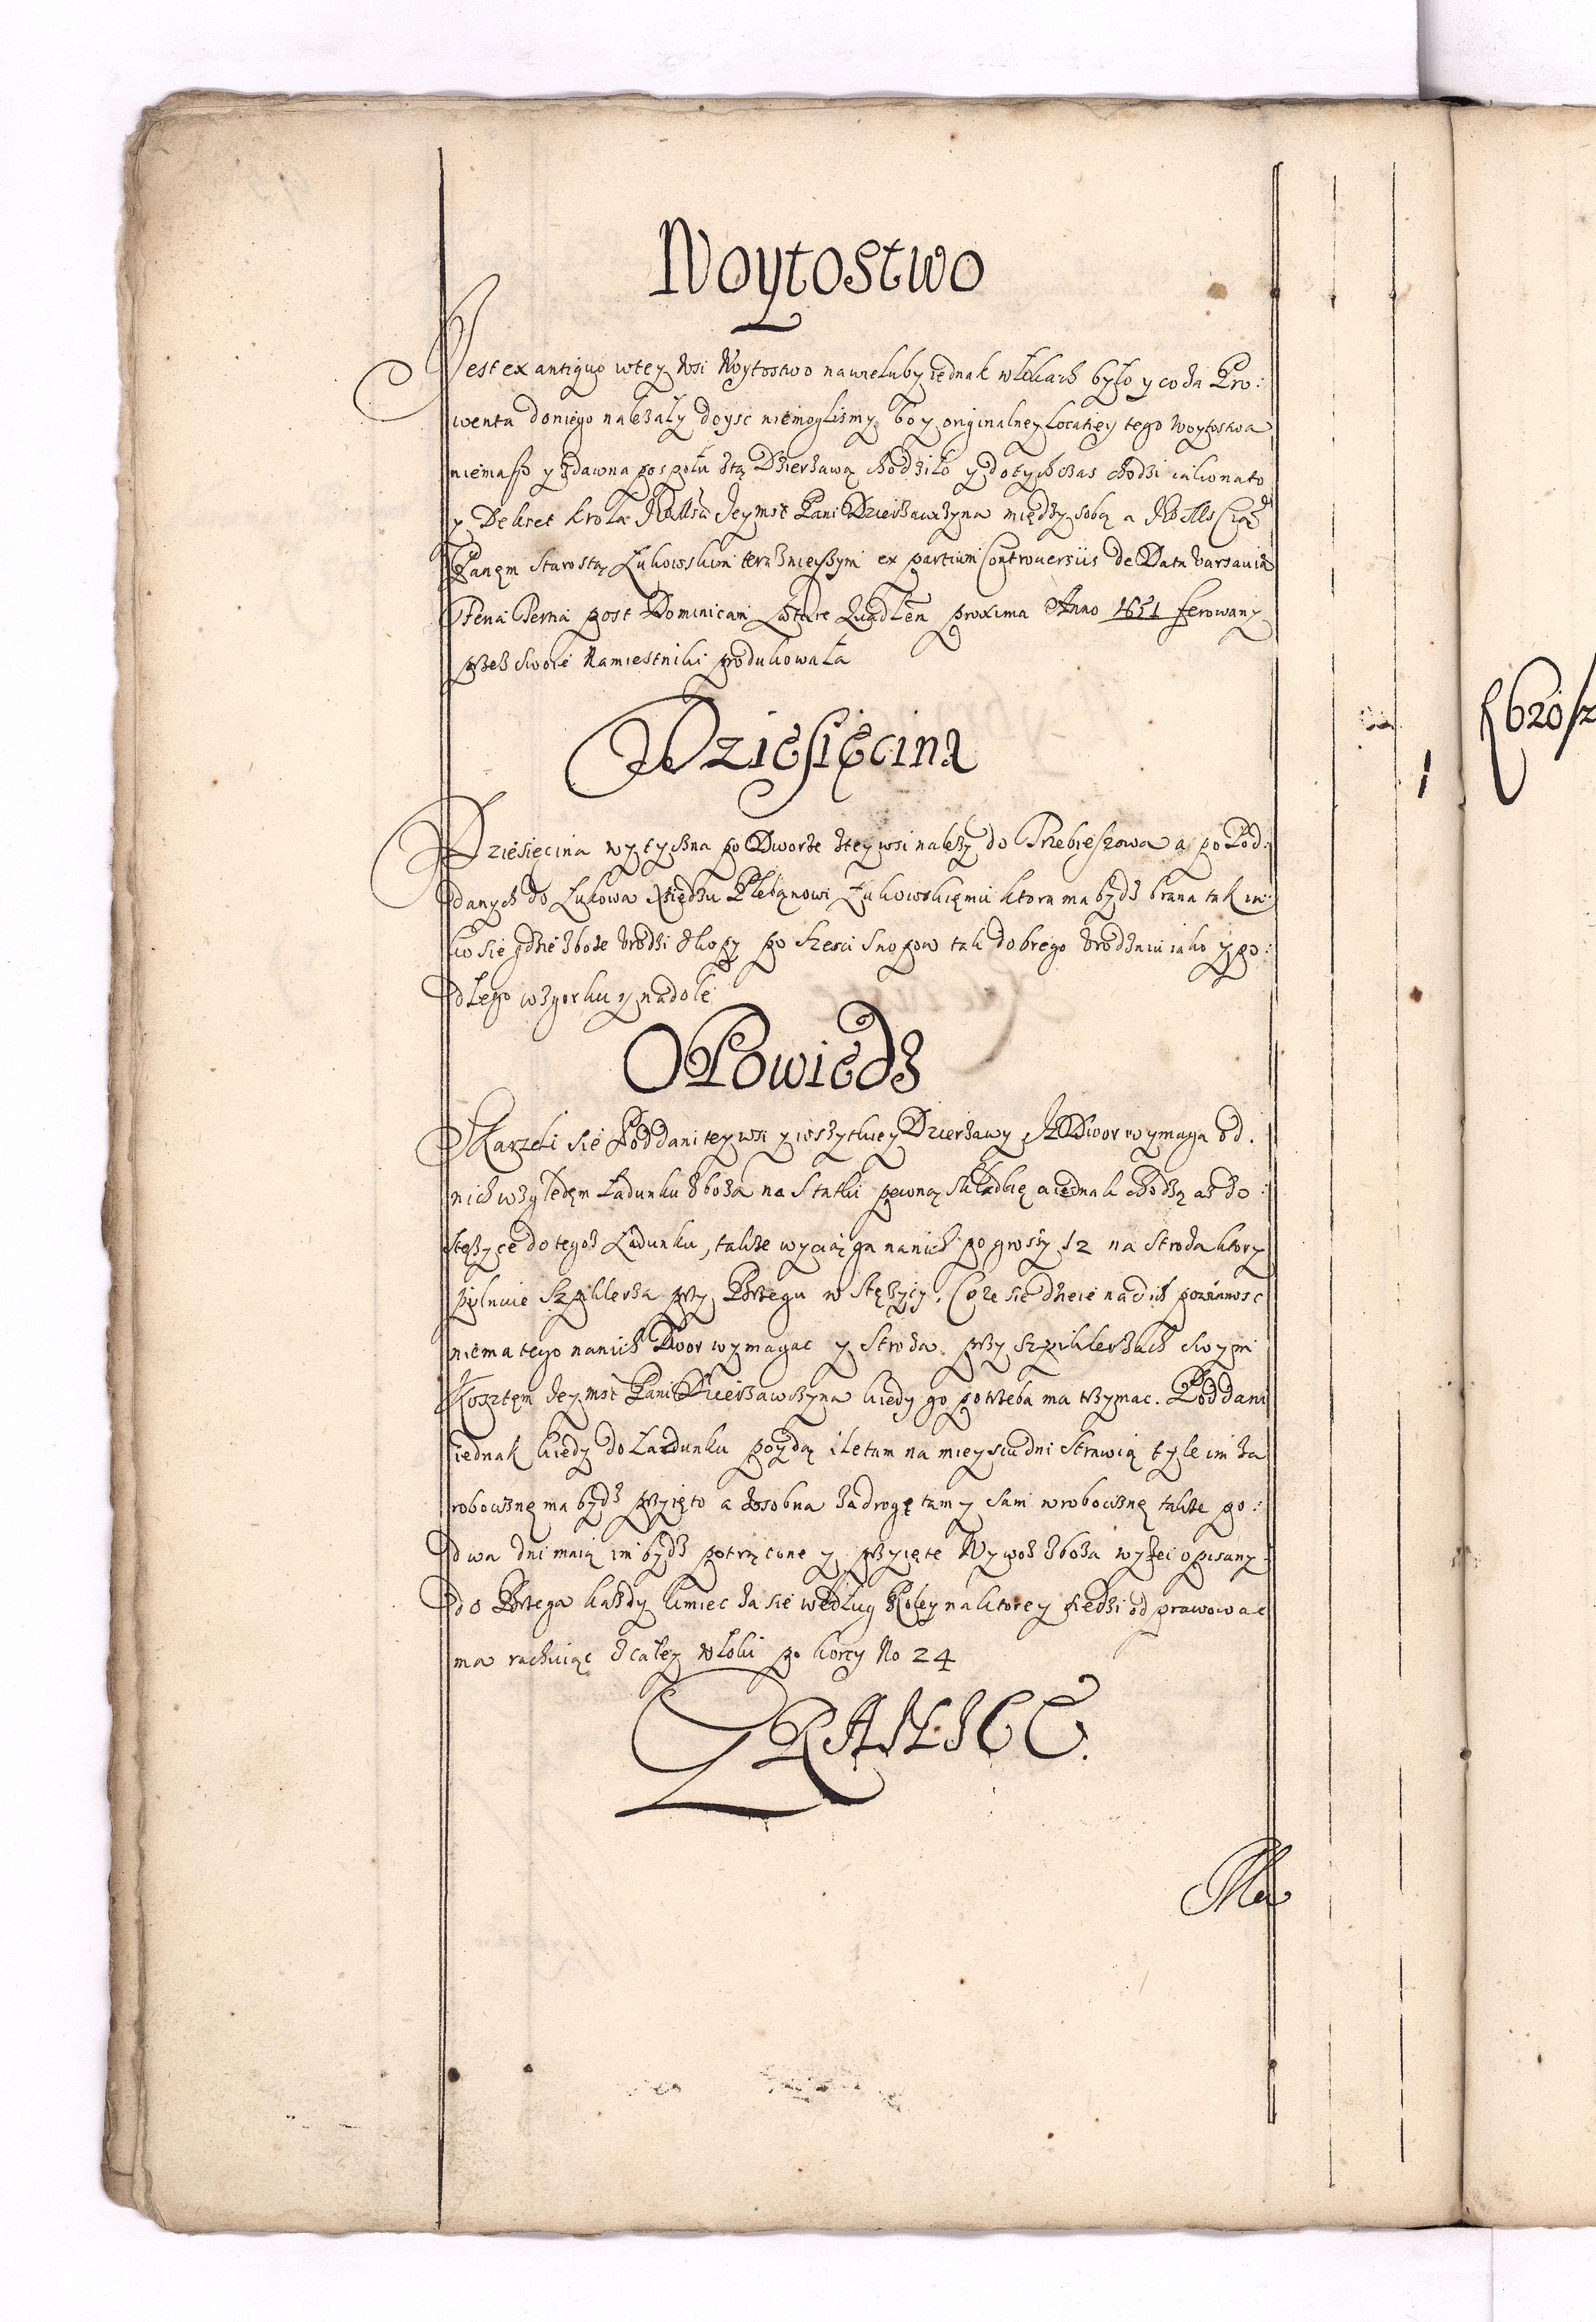 Woytostwo
Jest ex antiquo wtey wsi Woytostwo nawieluby iednak włokach było y co za Pro:
wenta doniego należały doysc niemoglismy, bo y originalney Locatiey tego Woytostwa
niemasz y zdawna pospołu ztą Dzierzawą chodziło y dotychczas chodzi
y Dekret Krola Jeymsc Pani Dzierzawczyna między sobą a
Panem Starostą Łukowskim teraznieyszym ex partium Controversiis de Data Varsaviæ
Feria post Dominicam Lætare proxima Anno 1651 ferowany
przez swoie Namiestniki produkowała
Dziesięcina
Dziesięcina wytyczna po Dworze zteywsi należy do Trzebieszowa a po Pod:
danych do Łukowa Xiędzu Plebanowi Łukowskiemu ktora ma bydz brana tak iw:
ko sie gdzie zboże vrodzi zkopy po szesci snopow tak dobrego vrodzaiu iako y po:
dłego wzgorku y nadole
OPowiedz
Skarzeli się Poddani teywsi y wszytkiey Dzierzawy Iz Dwor wymaga od.
nich względem ładunku zboża na Statki pewną składkę a iednak chodzą aż do:
Stężyce dotegoż Ładunku, także wyciąga nanich po groszy 12 na Stroża ktory
pilnuie Szpiklerza przy Brzegu w Stężycy. Co ze się dzieie nad ich powinnosc
niema tego nanich Dwor wymagac y Stroża przy szpiklerzach swym
Kosztem Jeymsc Pani Dzierzawczyna kiedy go potrzeba ma trzymac. Poddani
iednak kiedy do Ładunku poydą ile tam na mieyscu dni strawią tyle im za
robociznę ma bydz przyięto a zosobna zadrogę tam y sam wrobociznę także po:
dwa dni maią im bydz potrącone y przyięte Wywoz zboża wyżei opisany
do Brzega każdy kmiec zasie według Roley naktorey siedzi odprawowac
ma rachuiąc zcałey włoki po korcy No 24
GRANICE.
Ma